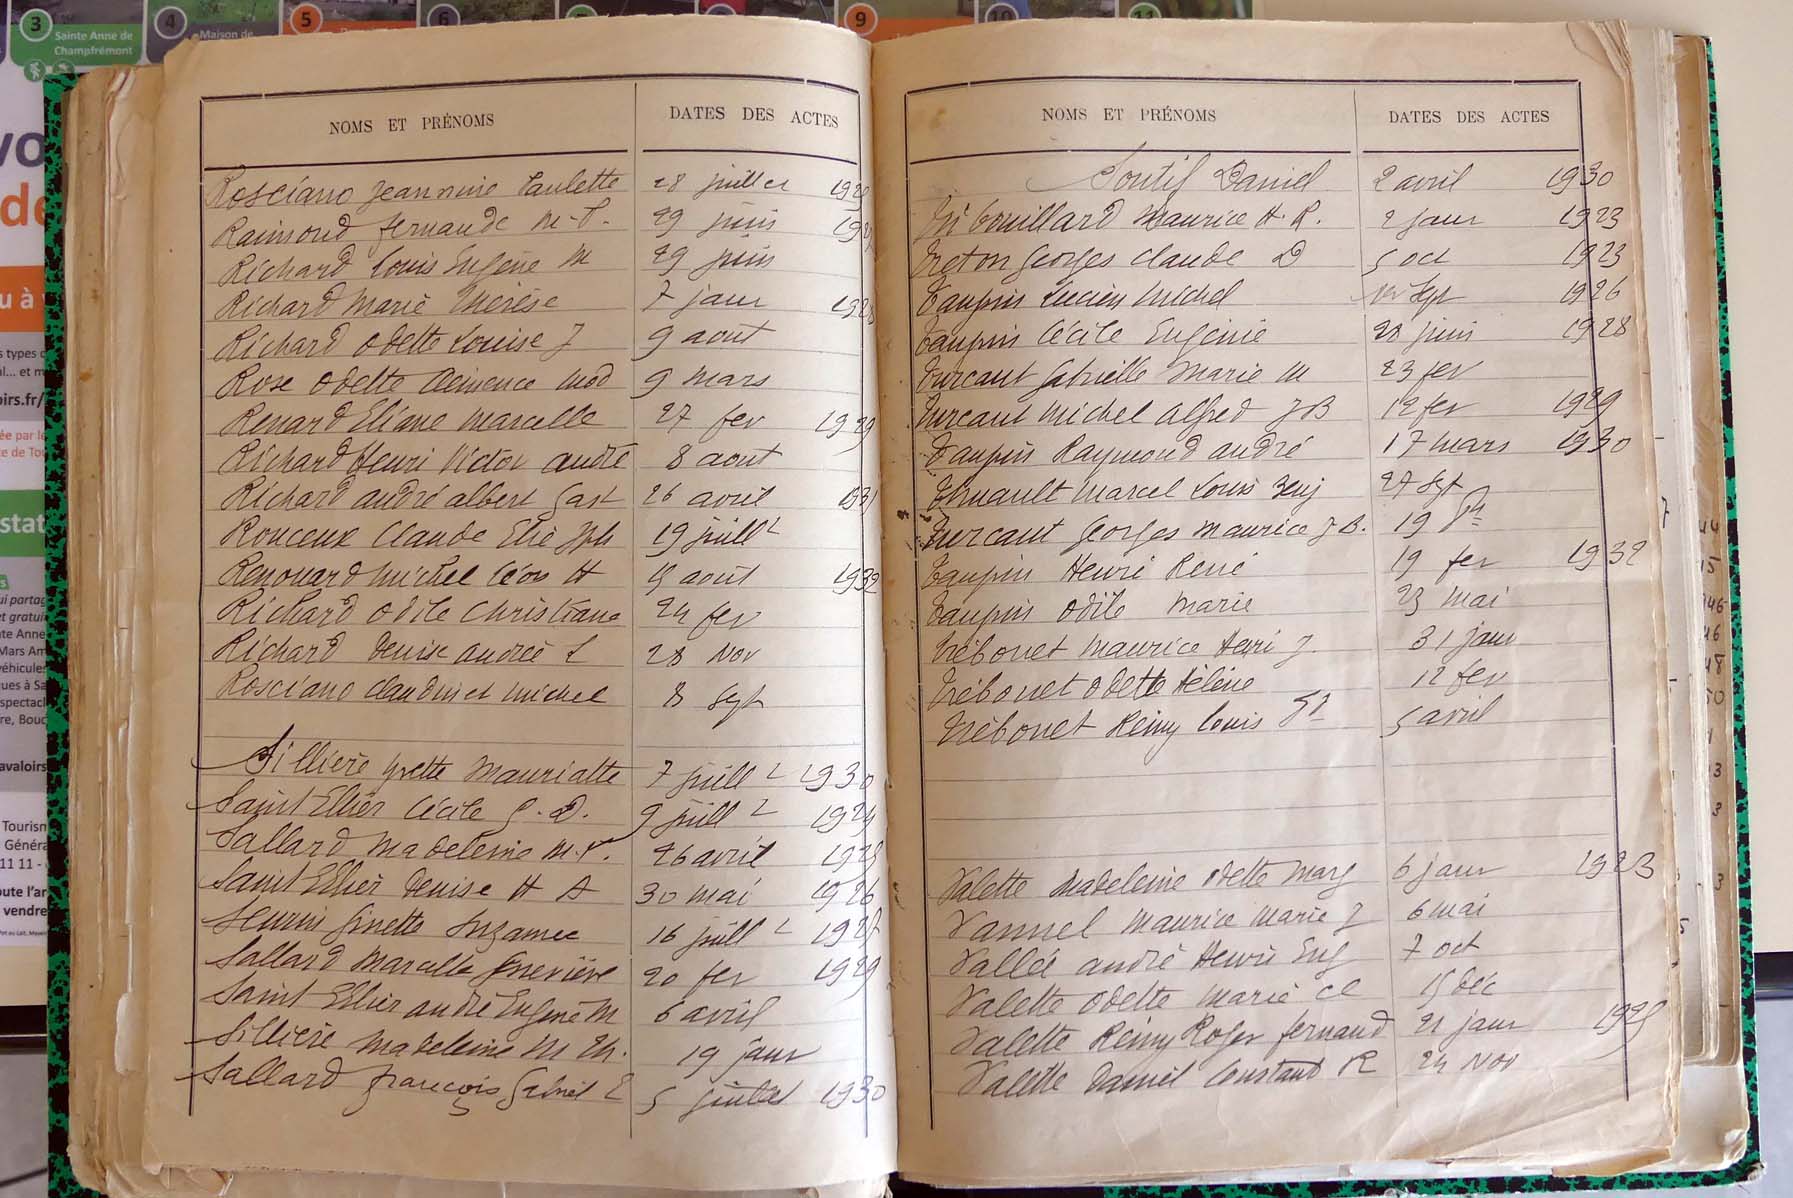 3 Sainte Anne de Champfrémont
4 Maison de
5
6
9
10
11
NOMS ET PRÉNOMS DATES DES ACTES
Rosciano Jeannine Paulette 28 juillet
Raimond fernande M-T. 29 juin
Richard Louis Eugène M 29 juin
Richard Marie Thérèse 7 janv 1928
Richard Odette Louise J 9 aout
Rose Odette Clémence Mod 9 Mars
Renard Eliane Marcelle 27 fev 1929
Richard Henri Victor andré 8 aout
Richard andré albert Gast 26 avril 1931
Ronceux Claude Elie Jph 19 juillt
Renouard Michel Léon H aout 1932
Richard Odile Christiane 24 fev
Richard Denise andrée L 28 Nov
Rosciano Claudine Michel 8 Sept
Sillière Yvette Mauricette 7 juillt 1930
Saint Ellier Cécile G. D. 9 juillt 1924
Sallard Madeleine M. 26 avril
Saint Ellier Denise H A 30 mai 1926
Ginette Suzanne 16 juillt 1927
Sallard Marcelle Geneviève 20 fev 1929
Saint Ellier andré Eugène M 6 avril
Sillière Madeleine M Th. 19 janv
Sallard françois Gabriel E 5 juillet 1930
NOMS ET PRÉNOMS DATES DES ACTES
Soutif Daniel 2 avril 1930
Tribouillard Maurice H. R. 2 janv 1923
Treton Georges Claude D 5 oct 1923
Taupin Lucien Michel 1er Sept 1926
Taupin Cécile Eugénie 20 juin 1928
Turcant Gabrielle Marie M 23 fev
Turcant Michel Alfred J B 12 fev 1929
Taupin Raymond andré 17 mars 1930
Thuault Marcel Louis Benj 27 Sept
Turcant Georges Maurice J B. 19
Taupin Henri René 19 fev 1932
Taupin Odile Marie 23 mai
Trébouet Maurice Henri J. 31 janv
Trébouet Odette Hélène 12 fev
Trébouet Rémy Louis 5 avril
Valette Madeleine Odette Marg 6 janv 1923
Vannel Maurice Marie J 6 mai
Vallée andré Henri Eug 7 oct
Valette Odette Marie Cl 15 déc
Valette Rémy Roger fernand 21 janv
Valette Daniel Constant R 24 Nov